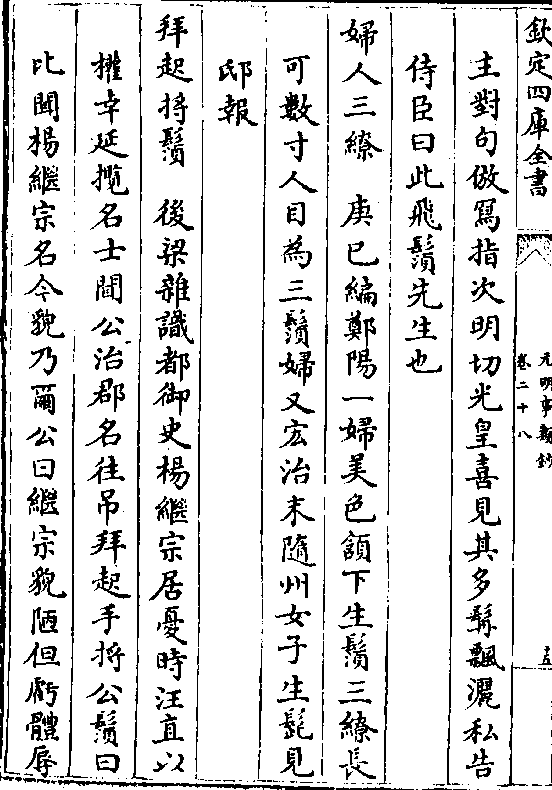 欽定四庫全書
元明事類鈔
卷二十八
主對句倣寫指次明切光皇喜見其多髯飄灑私告
侍臣曰此飛鬚先生也
婦人三繚　庚巳編鄭陽一婦美色頷下生鬚三繚長
可數寸人目為三鬚婦又宏治末隨州女子生髭見
邸報
拜起捋鬚　後梁雜識都御史楊繼宗居憂時汪直以
權幸延攬名士聞公治郡名往吊拜起手捋公鬚曰
比聞楊繼宗名今貌乃爾公曰繼宗貌陋但虧體辱